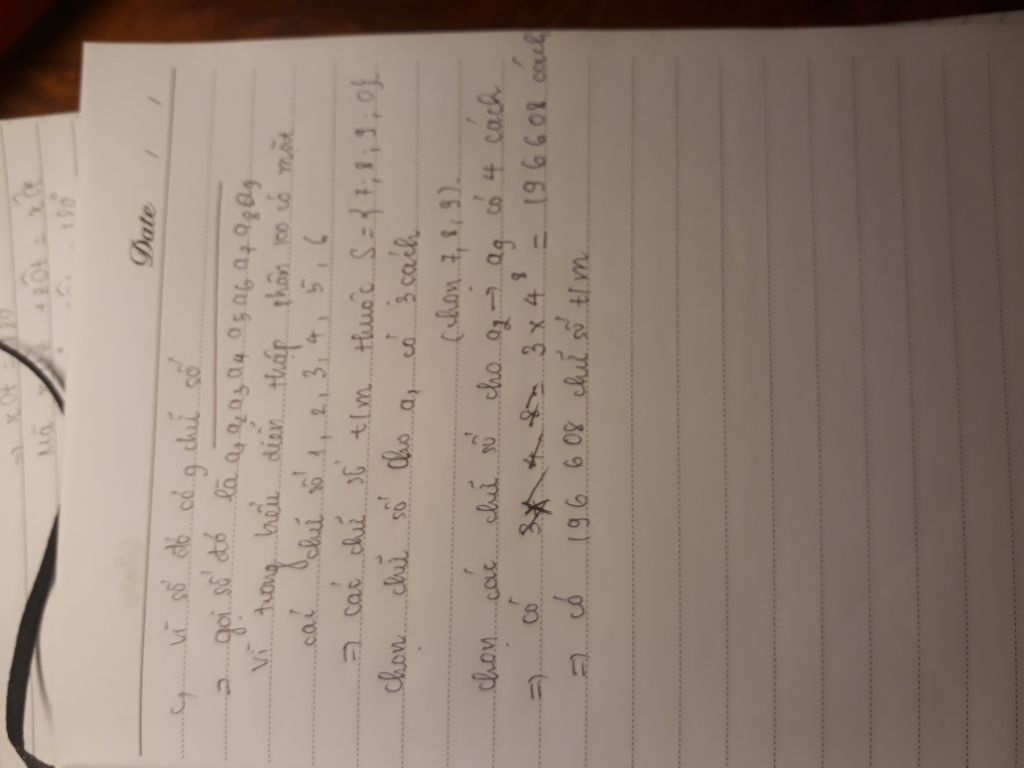 Date / /
c, Vì số đó có 9 chữ số
=> gọi số đó là a1a2a3a4a5a6a7a8a9
Vì trong biểu diễn thập phân 100 có mặt
các chữ số 1, 2, 3, 4, 5, 6
=> các chữ số tìm thuộc S = {7, 8, 9, 0}
chọn chữ số cho a1 có 3 cách
(chọn 7, 8, 9).
chọn các chữ số cho a2 → a9 có 4 cách
=> có = 3 x 4^8 = 196608 cách
=> có 196 608 chữ số t/m